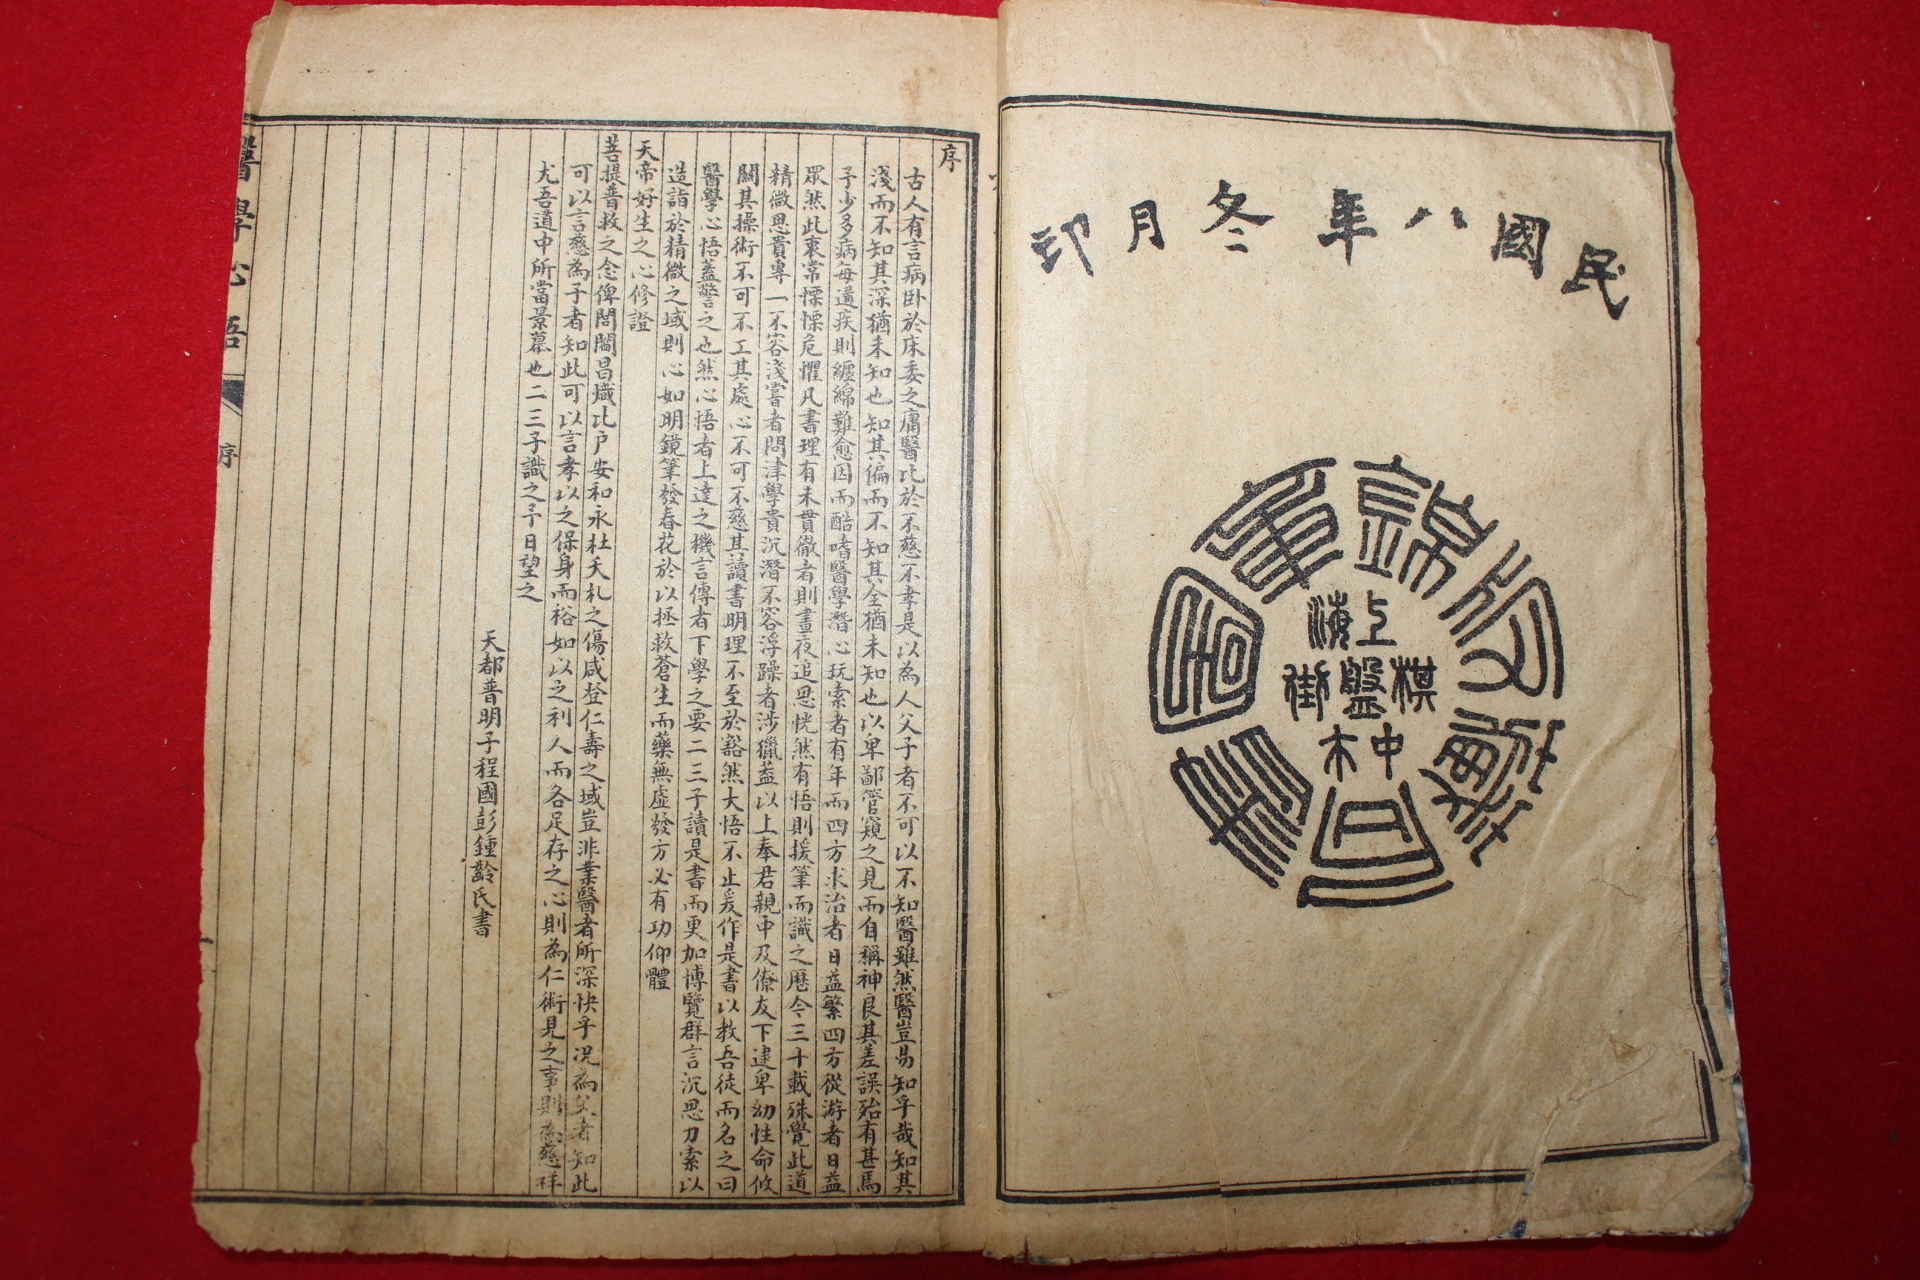 民國八年冬月印
上海
棋盤街
中
錦章圖書
序
古人有言病卧於床委之庸醫比於不慈不孝是以為人父子者不可以不知醫雖然醫豈易知乎哉知其
淺而不知其深猶未知也知其偏而不知其全猶未知也以卑鄙管窺之見而自稱神良其差誤殆有甚焉
予少多病每遘疾則纏綿難愈因而酷嗜醫學潛心玩索者有年而四方求治者日益繁四方從游者日益
眾然此衷常慄慄危懼凡書理有未貫徹者則晝夜追思恍然有悟則援筆而識之歷今三十載殊覺此道
精微思貴專一不容淺嘗者問津學貴沉潛不容浮躁者涉獵蓋以上奉君親中及僚友下逮卑幼性命攸
關其操術不可不工其處心不可不慈其讀書明理不至於豁然大悟不止爰作是書以教吾徒而名之曰
醫學心悟蓋警之也然心悟者上達之機言傳者下學之要二三子讀是書而更加博覽群言沉思力索以
造詣於精微之域則心如明鏡筆發春花於以拯救蒼生而藥無虛發方必有功仰體
天帝好生之心修證
菩提普救之念俾閭閻昌熾比户安和永杜夭札之傷咸登仁壽之域豈非業醫者所深快乎况為父者知此
可以言慈為子者知此可以言孝以之保身而裕如以之利人而各足存之心則為仁術見之事則為慈祥
尤吾道中所當景慕也二三子識之予日望之
天都普明子程國彭鍾齡氏書
醫學心悟
序